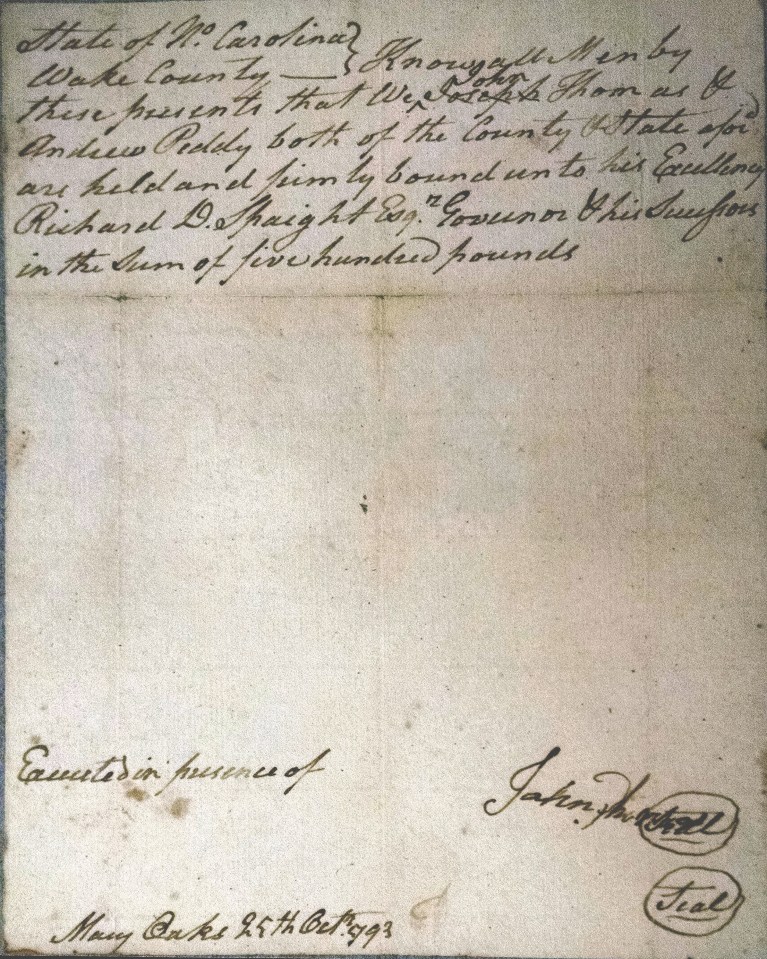 State of No. Carolina }
Wake County — } Know all Men by
John
these presents that We, Joseph Thomas &
Andrew Peddy both of the County & State aforsd
are held and firmly bound unto his Excellency
Richard D. Spaight Esqr. Governor & his Successors
in the Sum of five hundred pounds
Executed in presence of
John Thomas Seal
Seal
Mary Oaks 25th Octr. 1793